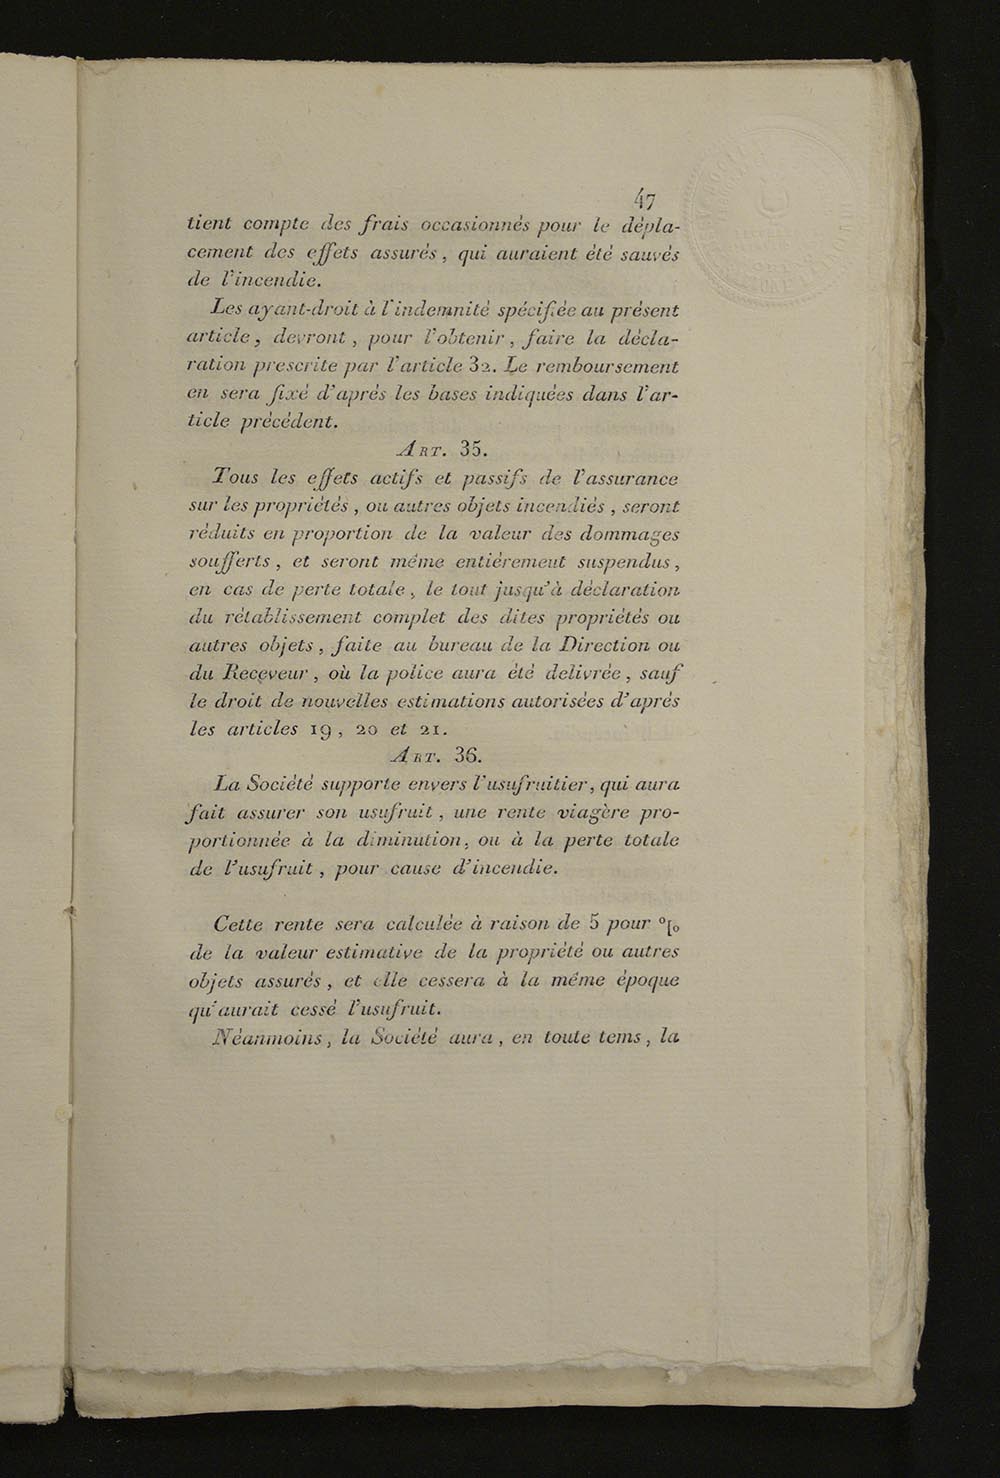 47
tient compte des frais occasionnés pour le dépla-
cement des effets assurés, qui auraient été sauvés
de l'incendie.
Les ayant-droit à l'indemnité spécifiée au présent
article, devront, pour l'obtenir, faire la décla-
ration prescrite par l'article 32. Le remboursement
en sera fixé d'aprés les bases indiquées dans l'ar-
ticle précédent.
ART. 35.
Tous les effets actifs et passifs de l'assurance
sur les propriétés, ou autres objets incendiés, seront
réduits en proportion de la valeur des dommages
soufferts, et seront même entiérement suspendus,
en cas de perte totale, le tout jusqu'à déclaration
du rétablissement complet des dites propriétés ou
autres objets, faite au bureau de la Direction ou
du Receveur, où la police aura été delivrée, sauf
le droit de nouvelles estimations autorisées d'aprés
les articles 19, 20 et 21.
ART. 36.
La Société supporte envers l'usufruitier, qui aura
fait assurer son usufruit, une rente viagère pro-
portionnée à la diminution, ou à la perte totale
de l'usufruit, pour cause d'incendie.
Cette rente sera calculée à raison de 5 pour °[o
de la valeur estimative de la propriété ou autres
objets assurés, et elle cessera à la même époque
qu'aurait cessé l'usufruit.
Néanmoins, la Société aura, en toute tems, la